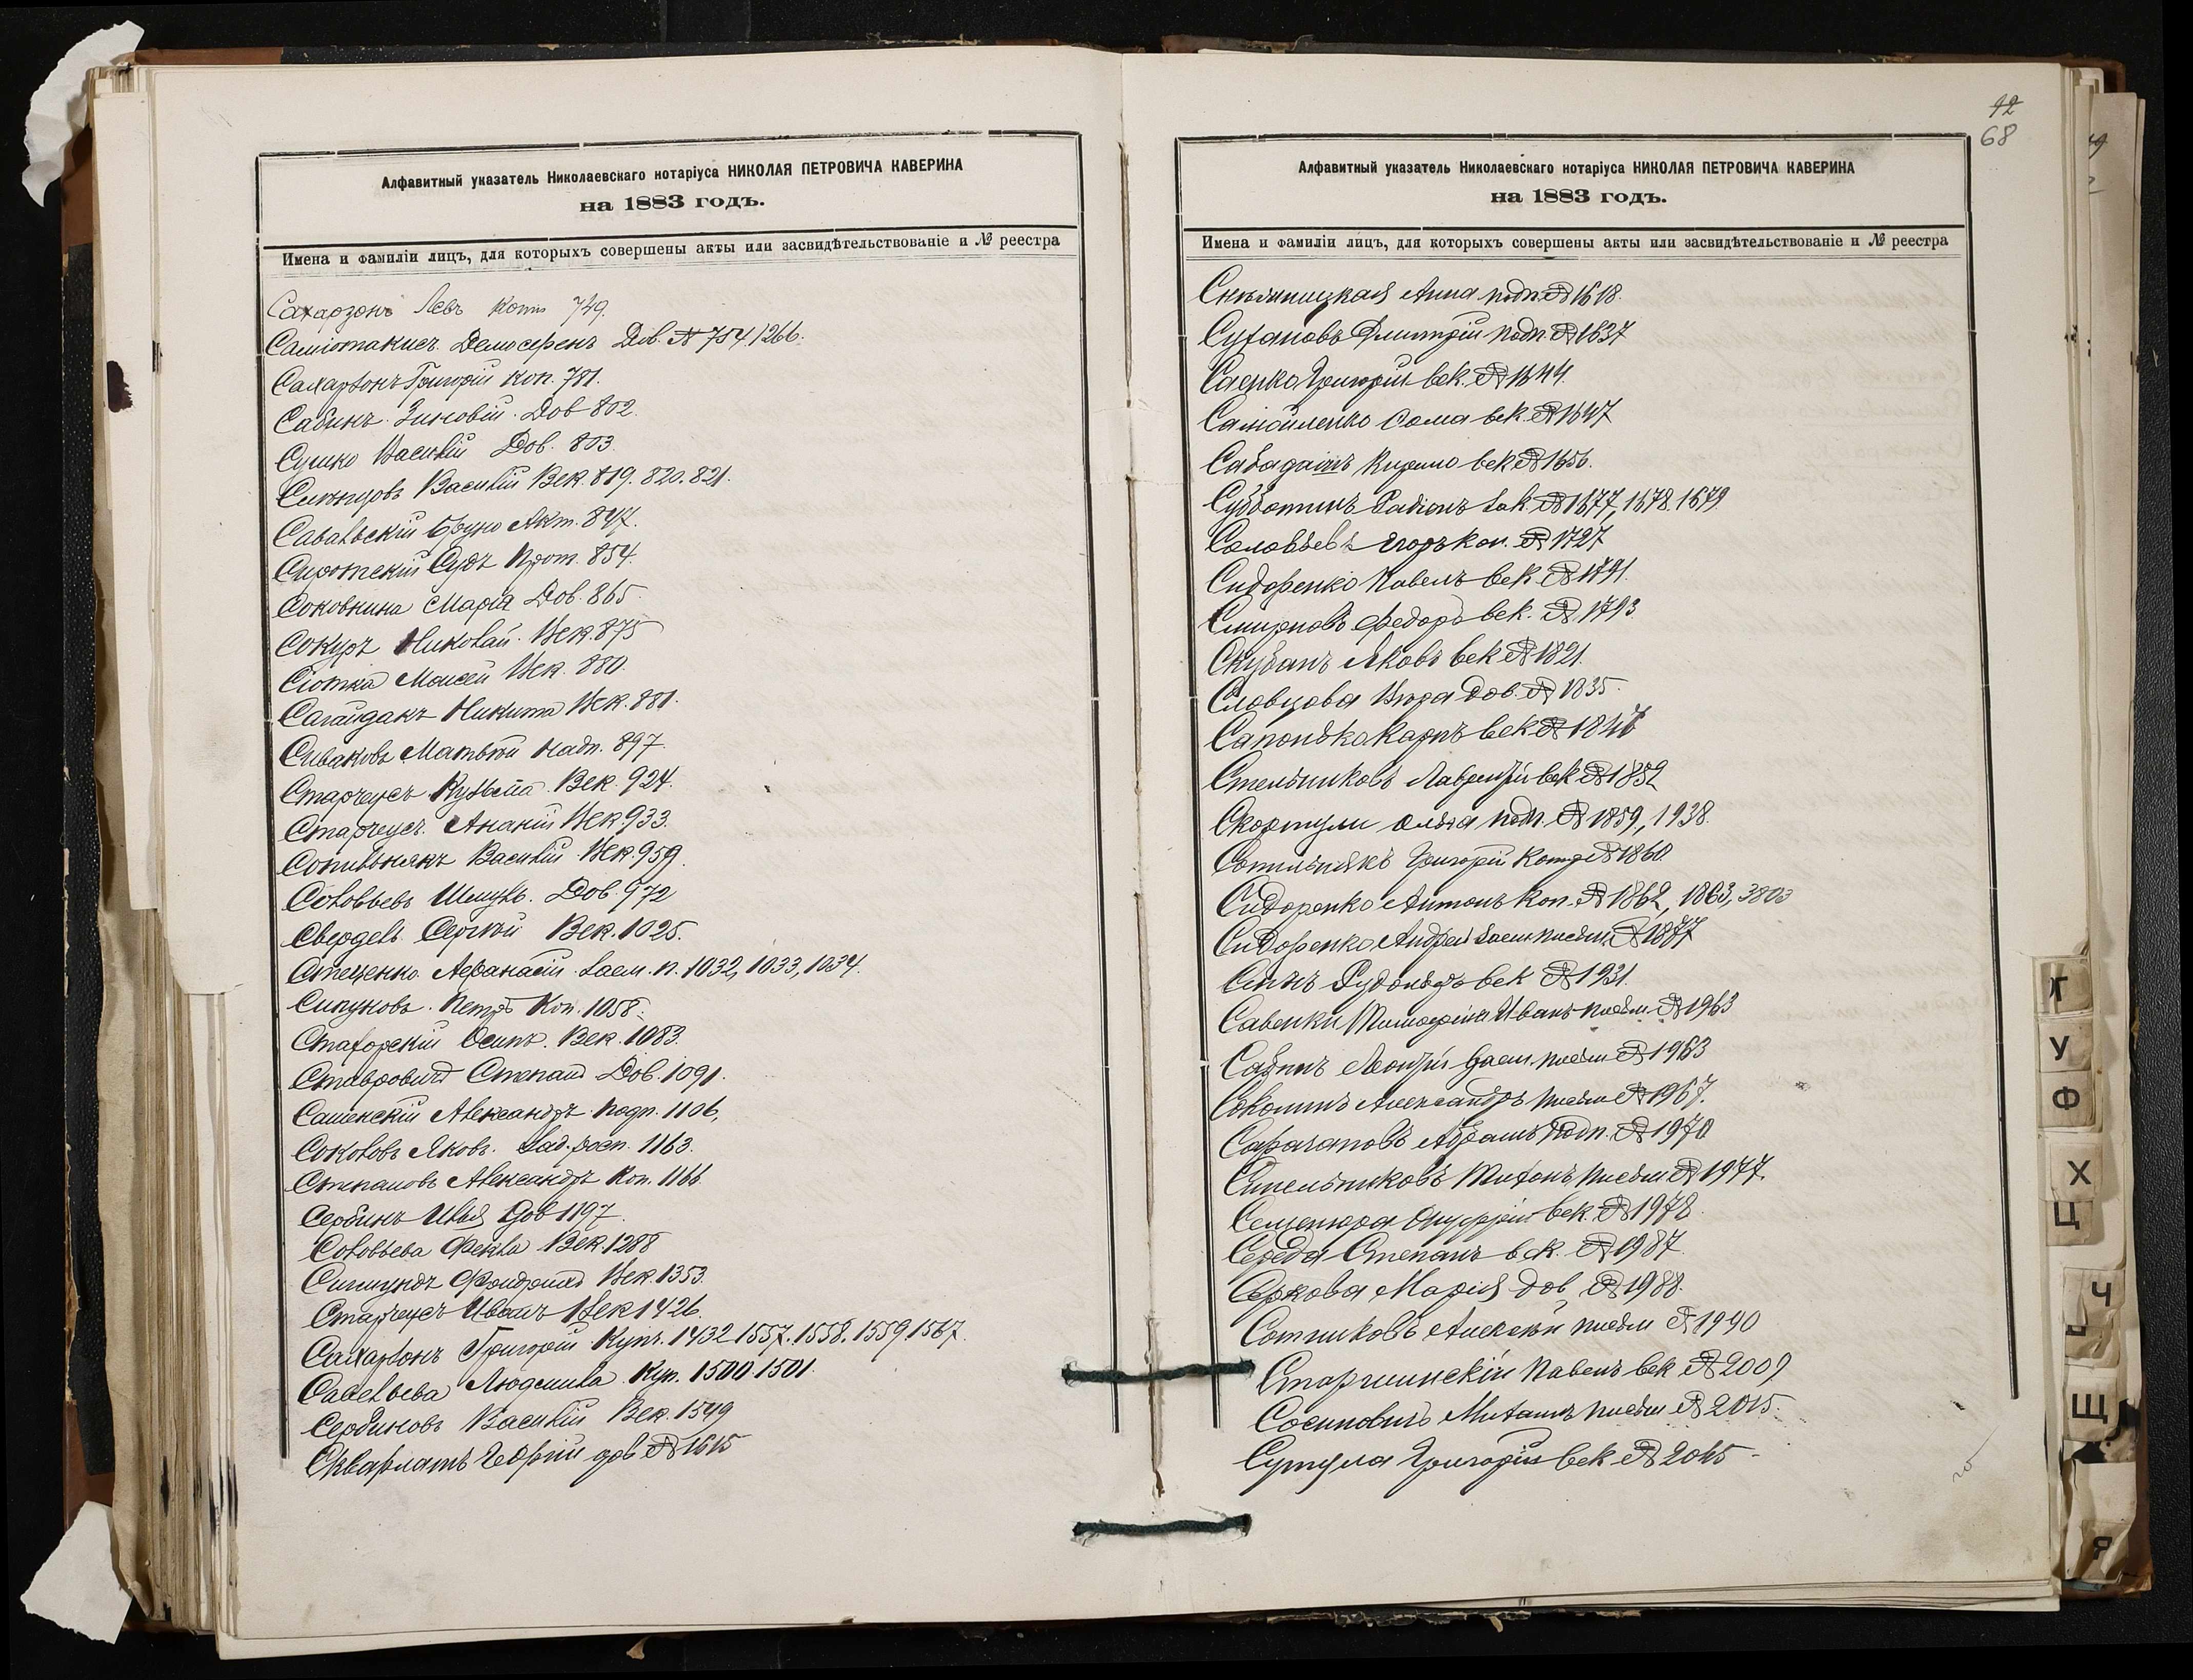 Алфавитный указатель Николаевскаго нотаріуса НИКОЛАЯ ПЕТРОВИЧА КАВЕРИНА
на 1883 годъ.
Имена и фамиліи лицъ, для которыхъ совершены акты или засвидѣтельствованіе и № реестра
Сахарзонъ Левъ Копт 749.
Саміотакисъ Демосѳенъ Дов. № 754, 1266.
Сахарзонъ Григорій Коп. 781.
Сабинъ Зиновій Дов 802.
Сушко Василій Дов. 803
Василій Век. 819. 820. 821.
Савальскій Бруно Акт. 847.
Сиротскій Судъ Прот. 854.
Соковнина Марія Дов. 865
Сокуръ Николай Век. 875
Моисей Век. 880.
Сагайдакъ Никита Век. 881.
Сиваковъ Матвѣй надп. 897.
Старчеусъ Кузьма Век. 924.
Старчеусъ Ананій Век. 933.
Сопильнякъ Василій Век. 959.
Соловьевъ Шмуль Дов. 972
Свердель Сергѣй Век. 1025.
Стеценко Аѳанасій Заем. п. 1032, 1033, 1034.
Сипуновъ Петръ Коп. 1058.
Стахорскій Осипъ Век. 1083.
Ставровичъ Степанъ Дов. 1091.
Александръ Подп. 1106,
Соколовъ Яковъ. Зад. росп. 1163.
Степановъ Александръ Коп. 1166.
Сербинъ Илья Дов 1197.
Соловьева Фекла Век. 1288
Сигмундъ Фридрихъ Век. 1353.
Старчеусъ Иванъ Век 1426
Сахарзонъ Григорій Купч. 1432 1557. 1558. 1559 1567.
Савельева Людмила Куп. 1500. 1501.
Сербиновъ Василій Век. 1549
Скварлатъ Георгій дов № 1615
12
68
Алфавитный указатель Николаевскаго нотаріуса НИКОЛАЯ ПЕТРОВИЧА КАВЕРИНА
на 1883 годъ.
Имена и фамиліи лицъ, для которыхъ совершены акты или засвидѣтельствованіе и № реестра
Анна подп. № 1618.
Сухановъ Дмитрій подп. № 1637
Саенко Григорій век. № 1644.
Самойленко Ѳома век. № 1647
Сабадашъ Кирило век № 1656.
Субботинъ Радіонъ зак. № 1677, 1678. 1679
Соловьевъ Егоръ коп. № 1727
Сидоренко Павелъ век. № 1791.
Смирновъ Федоръ век. № 1793.
Скубанъ Яковъ век № 1821.
Словцова Вѣра дов. № 1835.
Карпъ век № 1846
Стельниковъ Лаврентій век № 1852
Скорпули Ольга подп. № 1859, 1938.
Сотильнякъ Григорій Конт № 1860.
Сидоренко Антонъ Коп. № 1862, 1863, 3803
Сидоренко Андрей Заем письм. № 1877
Рудольфъ век № 1931.
Савенки Тимоѳей и Иванъ письм № 1963
Сабинъ Леонтій Заем. письм № 1963
Соколинъ Александръ письм № 1967.
Сарачановъ Абрамъ подп. № 1970
Синельниковъ Митонъ письм № 1977.
Онуфрій век. № 1978
Середа Степанъ век. № 1987
Серкова Марія дов. № 1988.
Сотниковъ Алексѣй письм № 1990
Старжинскій Павелъ век № 2009
Сосиновичъ письм № 2015.
Сутула Григорій век № 2065